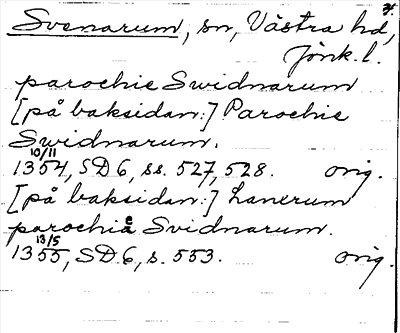 Svenarum, sn, Västra hd,
Jönk. l.
parochie Swidnarum
[på baksidan:] Parochie
Swidnarum.
1354 10/11, SD 6, ss. 527, 528. orig.
[på baksidan:] Lanerum
parochie Svidnarum.
1355 13/5, SD 6, s. 553. orig.